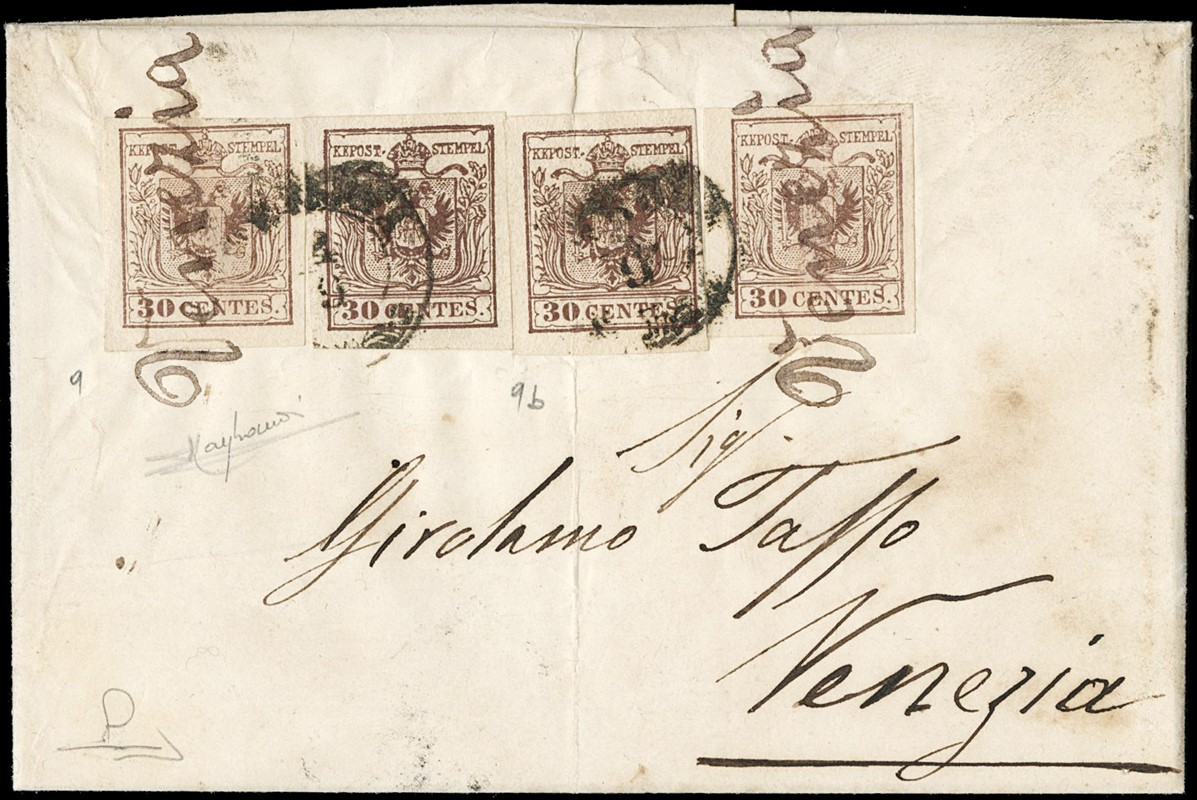 Venezia Venezia
KKPOST- STEMPEL KKPOST- STEMPEL KKPOST- STEMPEL KKPOST- STEMPEL
30 CENTES. 30 CENTES. 30 CENTES. 30 CENTES.
9 9b
Sigr
Girolamo Tasso
Venezia